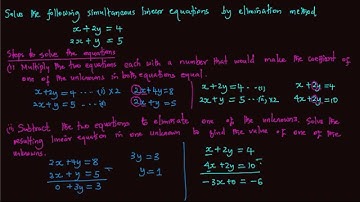 Solve the following simultaneous linear equations by elimination method
x + 2y = 4
2x + y = 5
Steps to solve the equations
(i) Multiply the two equations each with a number that would make the coefficient of
one of the unknowns in both equations equal.
x + 2y = 4 ---- (i) x2
2x + 4y = 8
2x + y = 5 ---- (ii)
2x + y = 5
x + 2y = 4 --- (i)
2x + y = 5 --- (ii) x2
x + 2y = 4
4x + 2y = 10
(ii) Subtract the two equations to eliminate one of the unknowns. Solve the
resulting linear equation in one unknown to find the value of one of the
unknowns.
2x + 4y = 8
2x + y = 5
0 + 3y = 3
3y = 3
y = 1
x + 2y = 4
4x + 2y = 10
-3x + 0 = -6